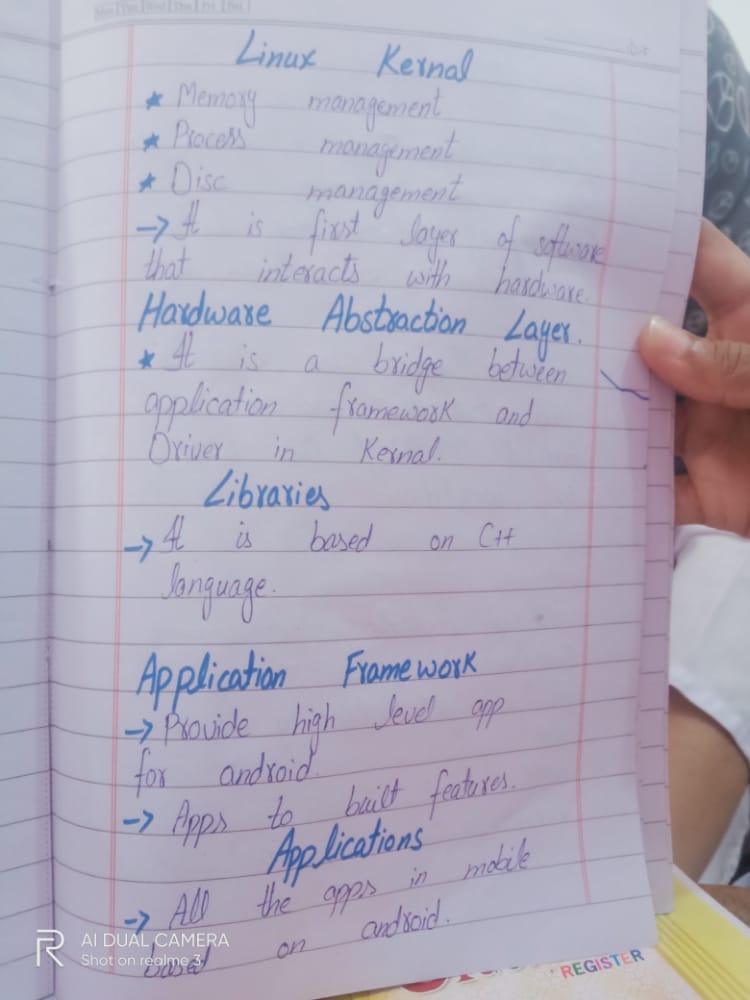 Linux Kernal
★ Memory management
★ Process management
★ Disc management
→ It is first layer of software
that interacts with hardware.
Hardware Abstraction Layer.
★ It is a bridge between
application framework and
Driver in Kernal.
Libraries
→ It is based on C++
language.
Application Framework
→ Provide high level app
for android.
→ Apps to built features.
Applications
→ All the apps in mobile
based on android.
R AI DUAL CAMERA
Shot on realme 3
REGISTER